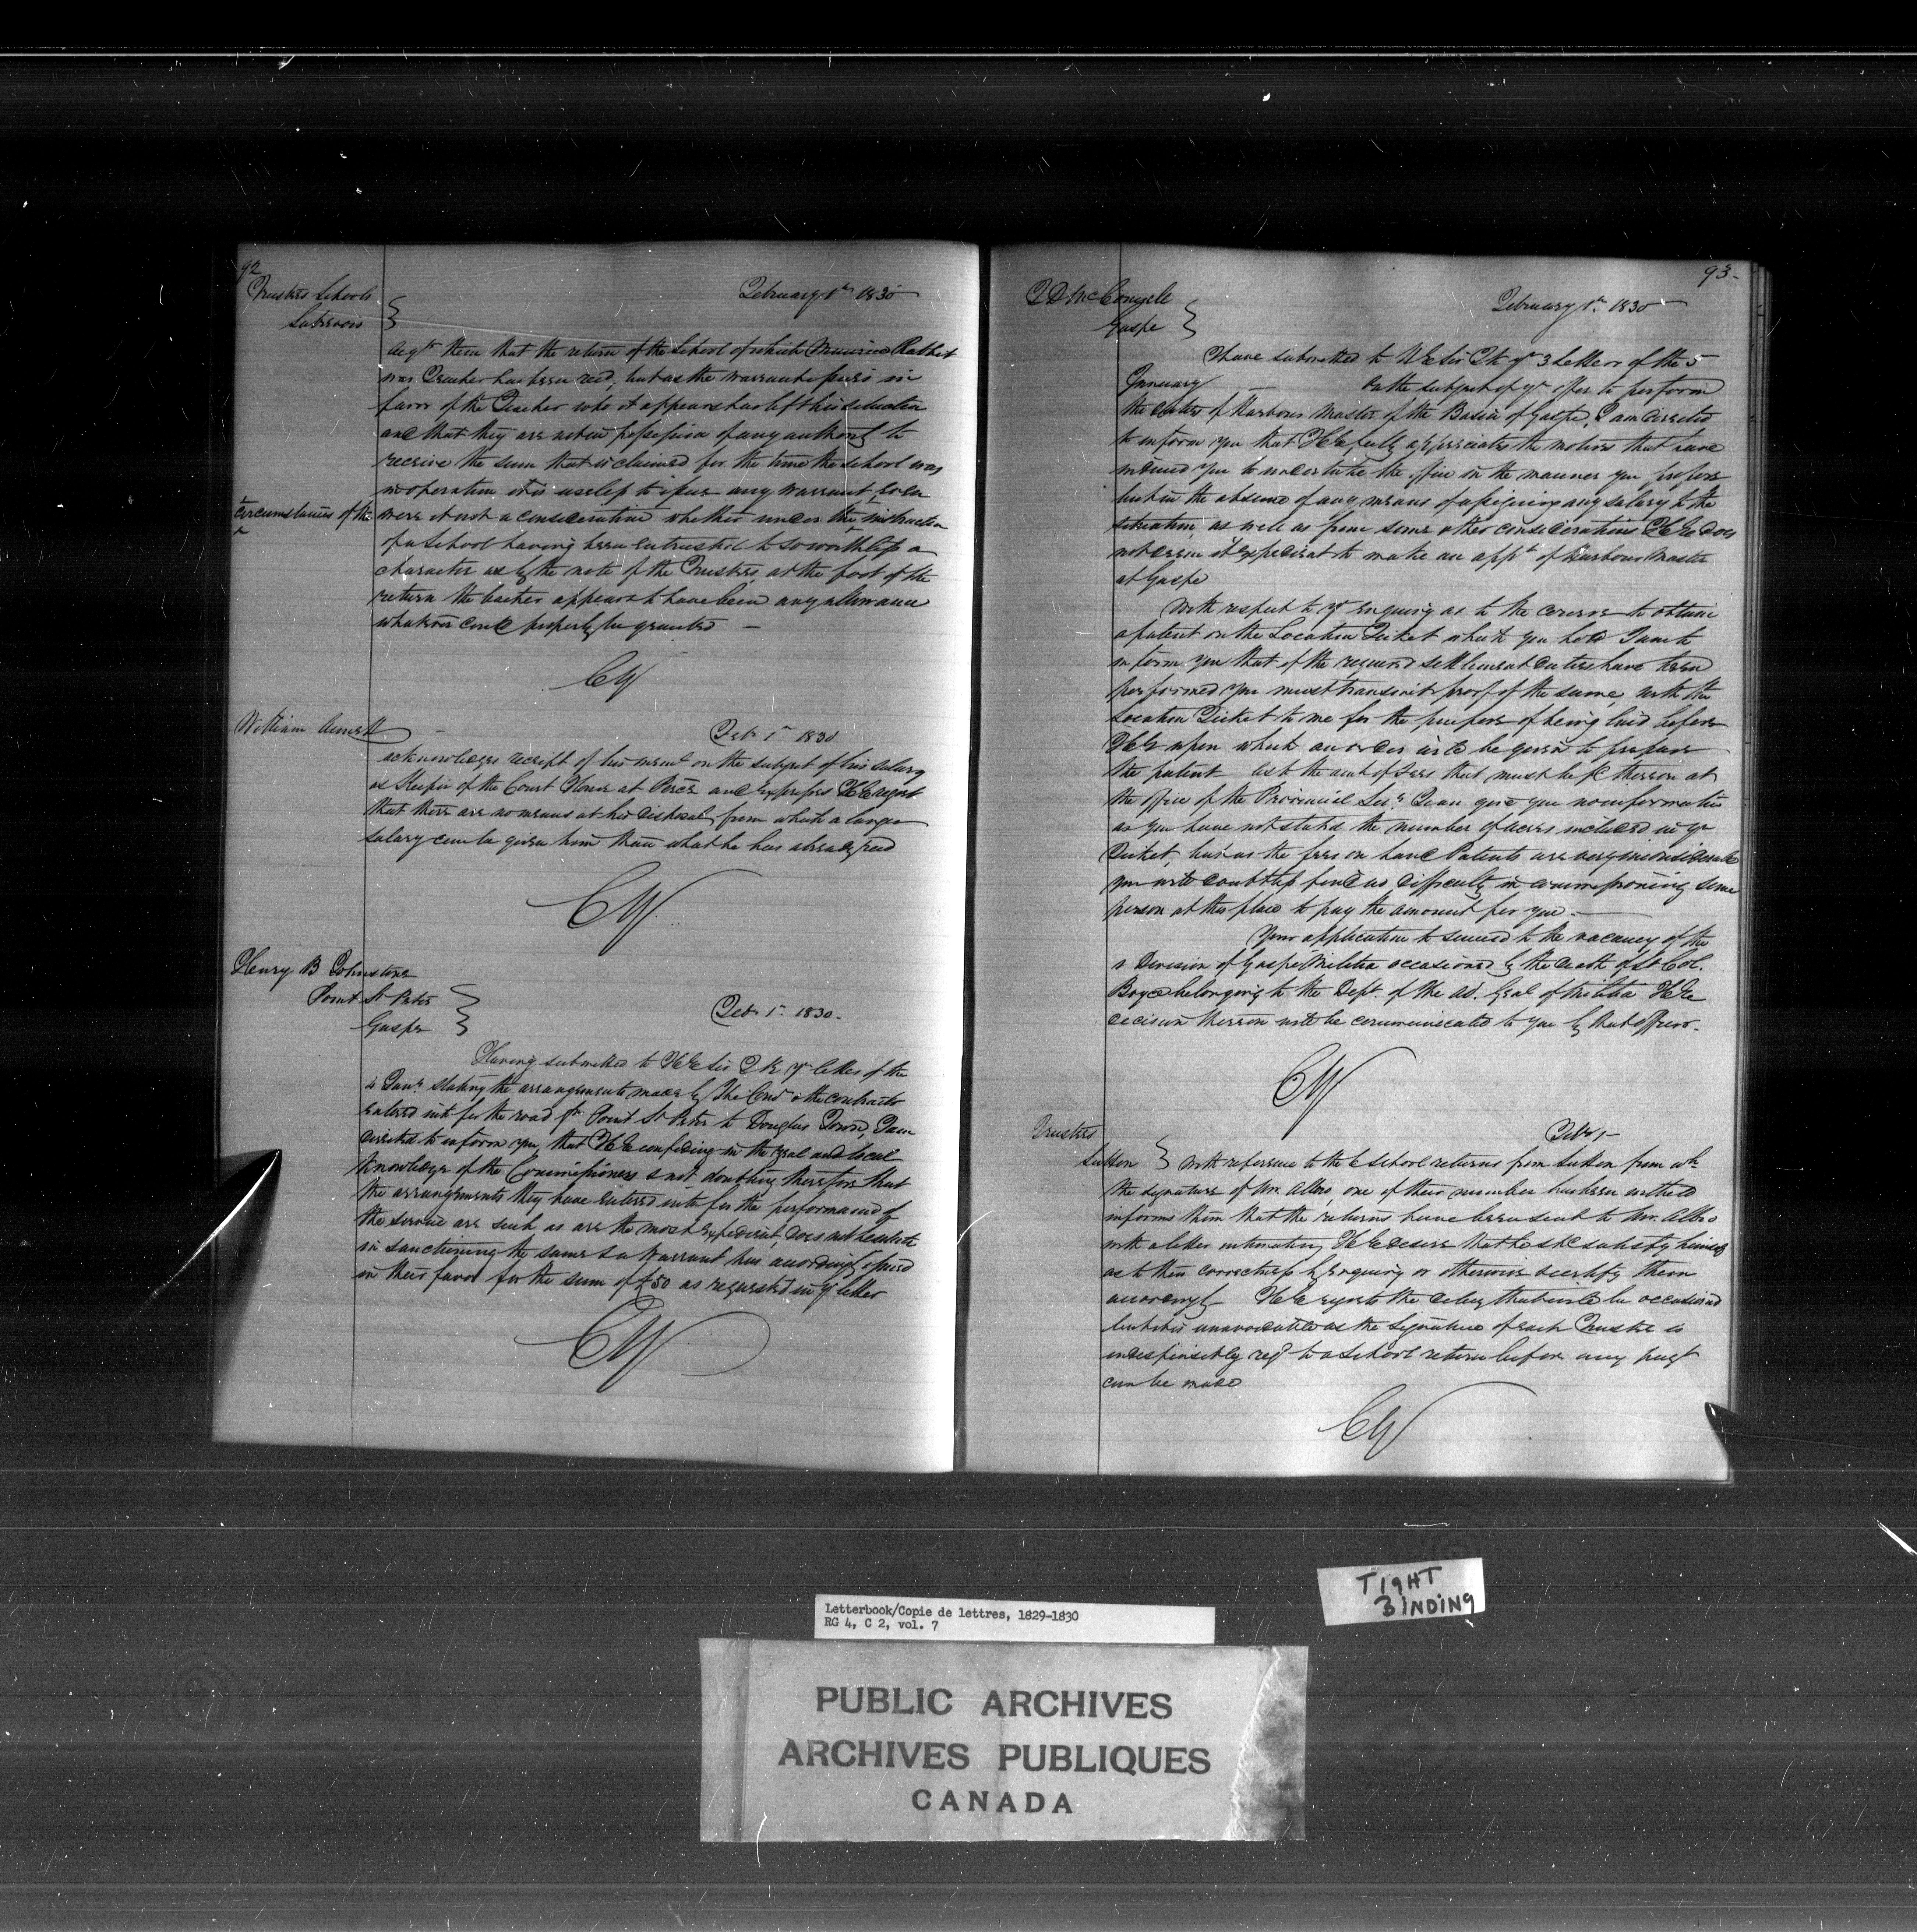 92
Trustees Schools
February 1st 1830
acqts them that the return of the School of which Maurice
was Teacher has been recd, but as the warrant issues in
favor of the Teacher who it appears has left his situation
and that they are not in possession of any authority to
receive the sum that is claimed for the time the school was
in operation it is useless to issue any warrant, even
circumstances of the were it not a consideration whether under the instruction
of a School having been entrusted to so worthless a
character as by the note of the Trustees, at the foot of the
return the teacher appears to have been any allowance
whatever could properly be granted —
CY
William Annett
Feb 1st 1830
acknowledges receipt of his meml on the subject of his salary
as Keeper of the Court House at Percé and expresses HE regret
that there are no means at his disposal from which a larger
salary can be given him than what he has already recd
CY
Henry B Johnstone
Point St Peter
Gaspe
Feb 1st 1830.
Having submitted to HE Sir J K yr letter of the
4 Jany stating the arrangements made by the & the contracts
entered into for the road fm Point St Peter to Douglas Town, I am
directed to inform you, that HE confiding in the zeal and local
knowledge of the Commissioners & not doubting therefore that
the arrangements they have entered into for the performance of
the service are such as are the most expedient, does not hesitate
in sanctioning the same & a Warrant has accordingly issued
in their favor for the sum of £50 as requested in yr letter
CY
93-
McConnell
Gaspe
February 1st 1830
I have submitted to HE Sir J K yr 3 Letters of the 5
January — On the subject of yr offer to perform
the duties of Harbour Master of the Basin of Gaspe, I am directed
to inform you that HE fully appreciates the motives that have
induced you to undertake the office in the manner you propose
but in the absence of any means of assigning any salary to the
situation, as well as from some other considerations HE does
not deem it expedient to make an appt of Harbour Master
at Gaspe
With respect to yr enquiry as to the course to obtain
a patent on the Location Ticket which you hold I am to
inform you that if the required settlement duties have been
performed you must transmit proof of the same, with the
Location Ticket to me for the purpose of being laid before
HE upon which an order will be given to prepare
the patent as to the amt of Fees that must be pd thereon at
the office of the Provincial Secy I can give you no information
as you have not stated the number of acres included in yr
Ticket, but as the fees on Land Patents are very inconsiderable
you will doubtless find no difficulty in commissioning some
person at this place to pay the amount for you. —
Your application to succeed to the vacancy of the
Division of Gaspe Militia occasioned by the death of Lt Col.
Boyd belonging to the Dept. of the Ad. Genl of Militia HE
decision thereon will be communicated to you by that officer.
CY
Trustees
Sutton
Feb 1 —
With reference to the 6 School returns from Sutton from wh
the signature of Mr. Allbo one of their number has been withheld
informs them that the returns have been sent to Mr. Allbo
with a letter intimating HE desire that he shd satisfy himself
as to their correctness by enquiry or otherwise & certify them
accordingly HE regrets the delay that will be occasioned
but it is unavoidable as the signature of each Trustee is
indispensibly reqd to a School return before any paymt
can be made
CY
TIGHT
BINDING
Letterbook/Copie de lettres, 1829-1830
RG 4, C 2, vol. 7
PUBLIC ARCHIVES
ARCHIVES PUBLIQUES
CANADA